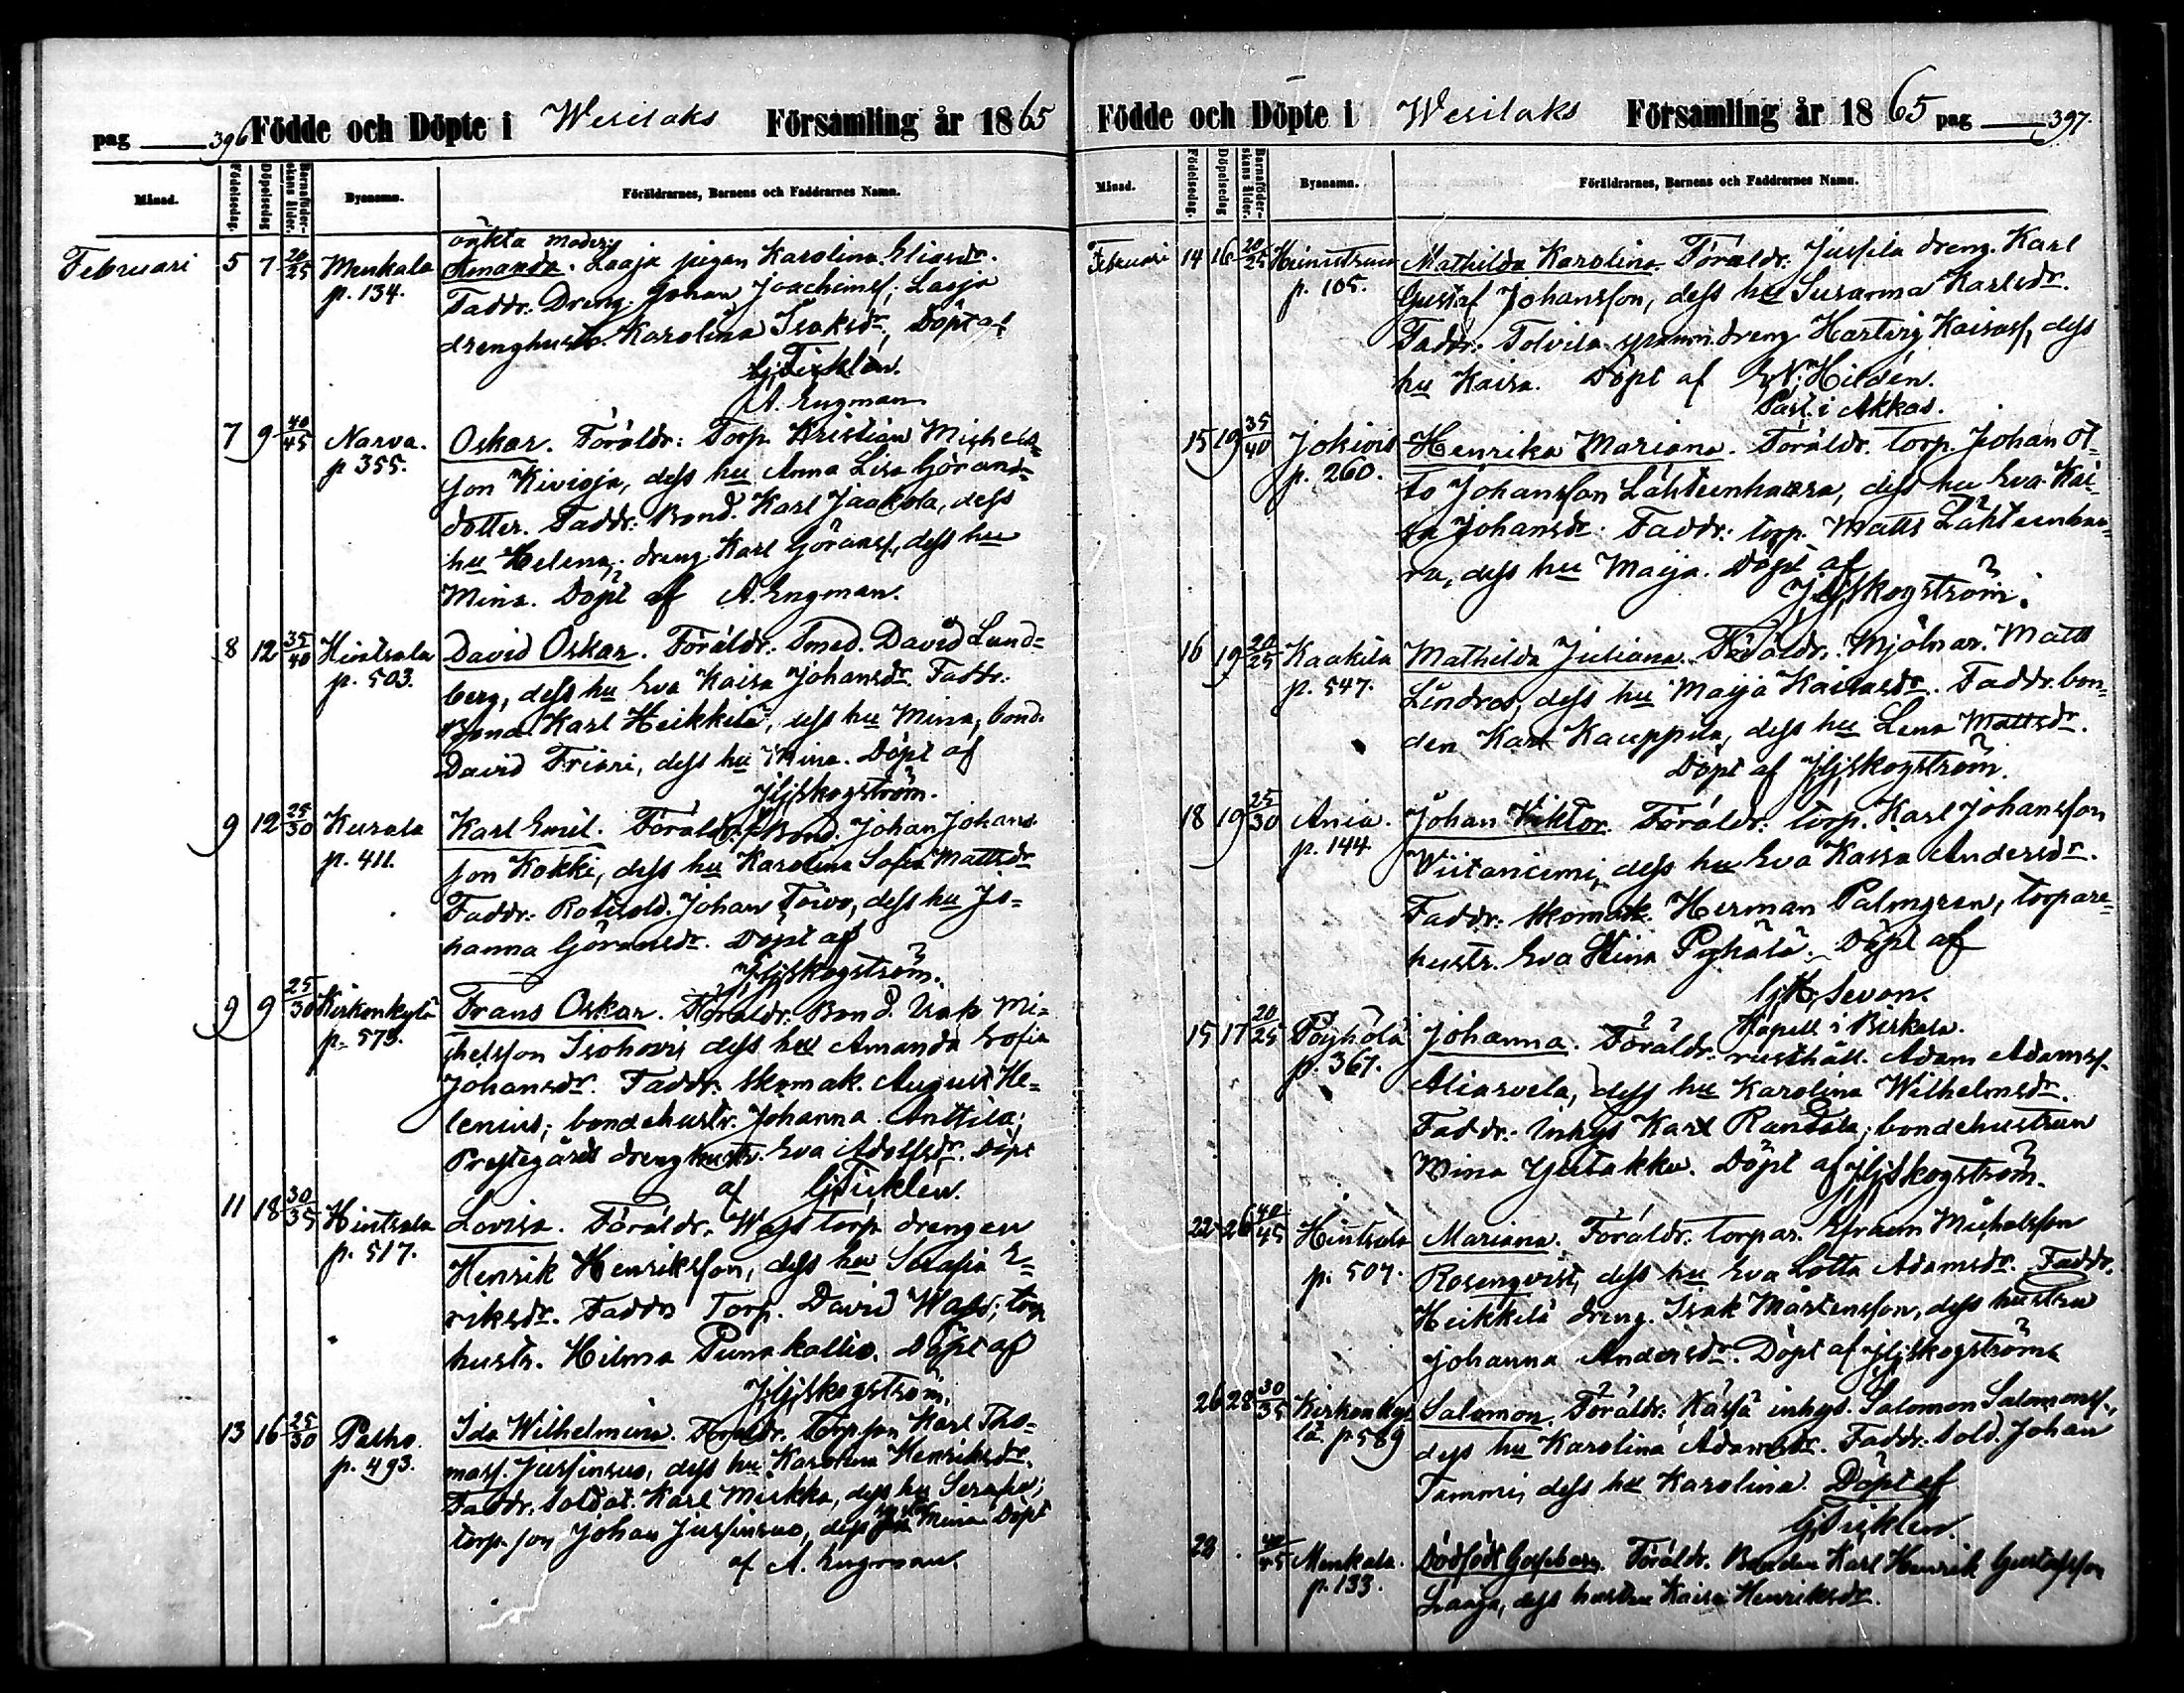 pag 396 Födde och Döpte i Wesilaks Församling år 1865
Månad. Födelsedag. Döpelsedag Barnaföderskans ålder. Byanamn. Föräldrarnes, Barnens och Faddrarnes Namn.
oäkta moder:
Februari 5 7 20/25 Menkala Amanda. Laaja pigan Karolina Eliasdr.
p. 134. Faddr. Dreng. Johan Joachimss; Laaja
drenghustr. Karolina Isaksdr, Döpt af
Gj. Ticklén.
A. Engman
7 9 40/45 Narva. Oskar. Föräldr: Torp. Kristian Michels-
p 355. son Kivioja, dess hu Anna Lisa Görans-
dotter. Faddr: Bond. Karl Jaakola, dess
hu Helena; dreng Karl Göranss, dess hu
Mina. Döpt af A. Engman.
8 12 35/40 Hintsala David Oskar. Föräldr. Smed. David Lund-
p. 503. berg, dess hu Eva Kaisa Johansdr. Faddr.
Bond. Karl Heikkilä, dess hu Mina, bond.
David Friari, dess hu Mina. Döpt af
JGjSkogström.
9 12 25/30 Kurala Karl Emil. Föräldr: Bond. Johan Johans-
p. 411. son Kokki, dess hu Karolina Sofia Mattsdr
Faddr: Rotesold. Johan Toivo, dess hu Jo-
hanna Göransdr. Döpt af
JGjSkogström.
9 9 25/30 Kirkonkylä Frans Oskar. Föräldr. Bond. Isak Mi-
p. 573. chelsson Isohovi dess hu Amanda Sofia
Johansdr. Faddr. Skomak. August He-
lenius; bondehustr. Johanna Anttila;
Prestegårds drenghustr. Eva Adolfsdr. Döpt
af Gj. Ticklén.
11 18 30/35 Hintsala Lovisa. Föräldr. Wass torp drengen
p. 517. Henrik Henriksson, dess hu Serafia E-
riksdr. Faddr Torp. David Wass; torp
hustr. Hilma Punakallio. Döpt af
JGjSkogström.
13 16 25/30 Palho. Ida Wilhelmina. Föräldr. Torp. son Karl Tho-
p. 493. mass. Jussinsuo, dess hu Karolina Henriksdr.
Faddr. soldat. Karl Mirkka, dess hu Serafia;
torp. son Johan Jussinsuo, dess hu Mina Döpt
af A. Engman.
Födde och Döpte i Wesilaks Församling år 1865 pag 397.
Månad. Födelsedag. Döpelsedag Barnaföderskans ålder. Byanamn. Föräldrarnes, Barnens och Faddrarnes Namn.
Februari 14 16 20/25 Mathilda Karolina. Föräldr. Jussila dreng. Karl
p. 105. Gustaf Johansson, dess hu Susanna Karlsdr.
Faddr. Tolvila dreng Hartvig Kaisass, dess
hu Kaisa. Döpt af W. Hildén.
Past. i Akkas.
15 19 35/40 Henrika Mariana. Föräldr. torp. Johan Ot-
p. 260. to Johansson Lähteenhaara, dess hu Eva Kai-
sa Johansdr. Faddr: torp. Matts Lähteenhaa-
ra, dess hu Maija. Döpt af
JGjSkogström.
16 19 20/25 Kaakila Mathilda Juliana. Föräldr. Mjölnar. Matts
p. 547. Lindros, dess hu Maija Kaisasdr. Faddr. bon-
den Karl Kauppila, dess hu Lena Mattsdr.
Döpt af JGjSkogström.
18 19 25/30 Ania. Johan Viktor. Föräldr: torp. Karl Johansson
p. 144. Viitaniemi, dess hu Eva Kaisa Andersdr.
Faddr: Skomak. Herman Palmgren, torpare-
hustr. Eva Stina Pyhälä. Döpt af
Gj. H. Sevon.
Kapell. i Birkala.
15 17 20/25 Pöyhölä Johanna. Föräldr. rusthåll. Adam Adamss.
p. 367. Aliasvela, dess hu Karolina Wilhelmsdr.
Faddr. Inhys Karl Randala; bondehustrun
Mina Yhtakku. Döpt af JGjSkogström.
22 26 40/45 Hintsala Mariana. Föräldr. torpar. Efraim Michelsson
p. 507. Rosenqvist, dess hu Eva Lotta Adamsdr. Faddr.
Heikkilä dreng. Isak Mårtensson, dess hustru
Johanna Andersdr. Döpt af JGjSkogström
26 28 30/35 Kirkonky- Salomon. Föräldr: Kässä inhys. Salomon Salomonss.,
lä. p. 589 dess hu Karolina Adamsdr. Faddr. sold. Johan
Tammi, dess hu Karolina. Döpt af
Gj. Ticklén.
28 40/45 Menkala. Dödfödt Gossebarn. Föräldr. Bonden Karl Henrik Gustafsson
p. 133. Laaja, dess hustru Kaisa Henriksdr.